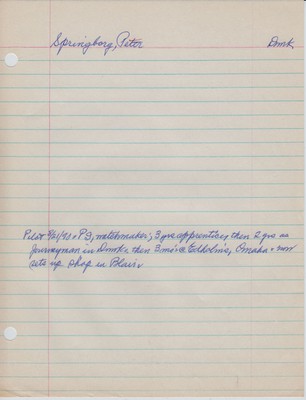 Springborg, Peter Dmrk
Pilot 9/21/98 - PS, watchmaker; 3 yrs apprentices then 2 yrs as
journeyman in Dmrk - then 3 mos @ Edholm's, Omaha - now
sets up shop in Blair -